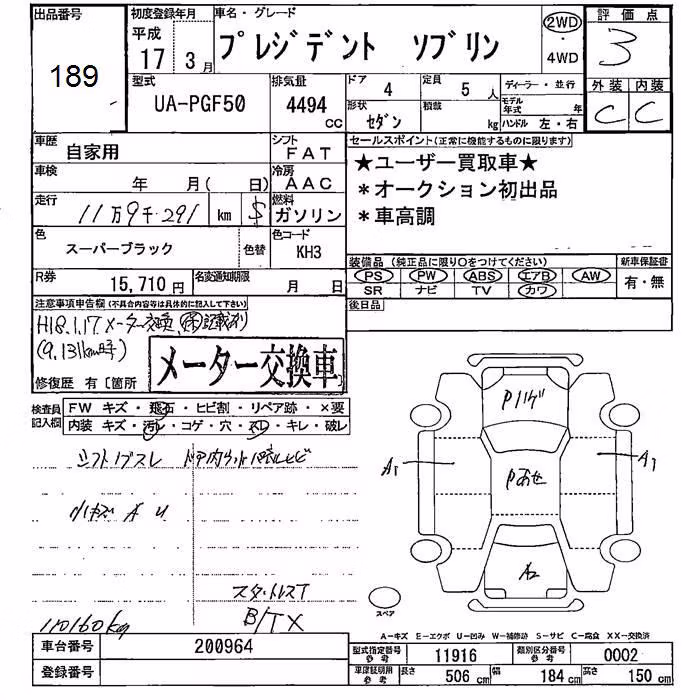 出品番号 初度登録年月 車名・グレード 評価点
189 平成 17 3月 プレジデント ソブリン 2WD・4WD 3
型式 排気量 ドア 4 定員 5人 ディーラー・並行 外装 内装
UA-PGF50 4494 cc 形状 セダン 積載 kg モデル年式 年 ハンドル 左・右 C C
車歴 自家用 シフト FAT セールスポイント(正常に機能するものに限ります)
車検 年 月( 日) 冷房 AAC ★ユーザー買取車★
走行 11万9千291 km $ 燃料 ガソリン *オークション初出品
*車高調
色 スーパーブラック 色替 色コード KH3
R券 15,710円 名変通知期限 月 日
装備品(純正品に限り○をつけてください) 新車保証書
PS PW ABS エアB AW 有・無
SR ナビ TV カワ
後日品
注意事項申告欄(不具合内容等は具体的に記入して下さい)
H18.1.17 メーター交換 記載あり
(9,131km時)
メーター交換車
修復歴 有〔箇所
検査員記入欄 FW キズ・飛石・ヒビ割・リペア跡・×要
内装 キズ・汚レ・コゲ・穴・スレ・キレ・破レ
シフトノブスレ
小キズ A U
スタットレスT
B/TX
110160kg
Pハゲ
A1 Pあせ A1
A2
スペア
A-キズ E-エクボ U-凹み W-補修跡 S-サビ C-腐食 XX-交換済
車台番号 200964 型式指定番号 参考 11916 類別区分番号 参考 0002
登録番号 車庫証明用 参考 長さ 506 cm 幅 184 cm 高さ 150 cm